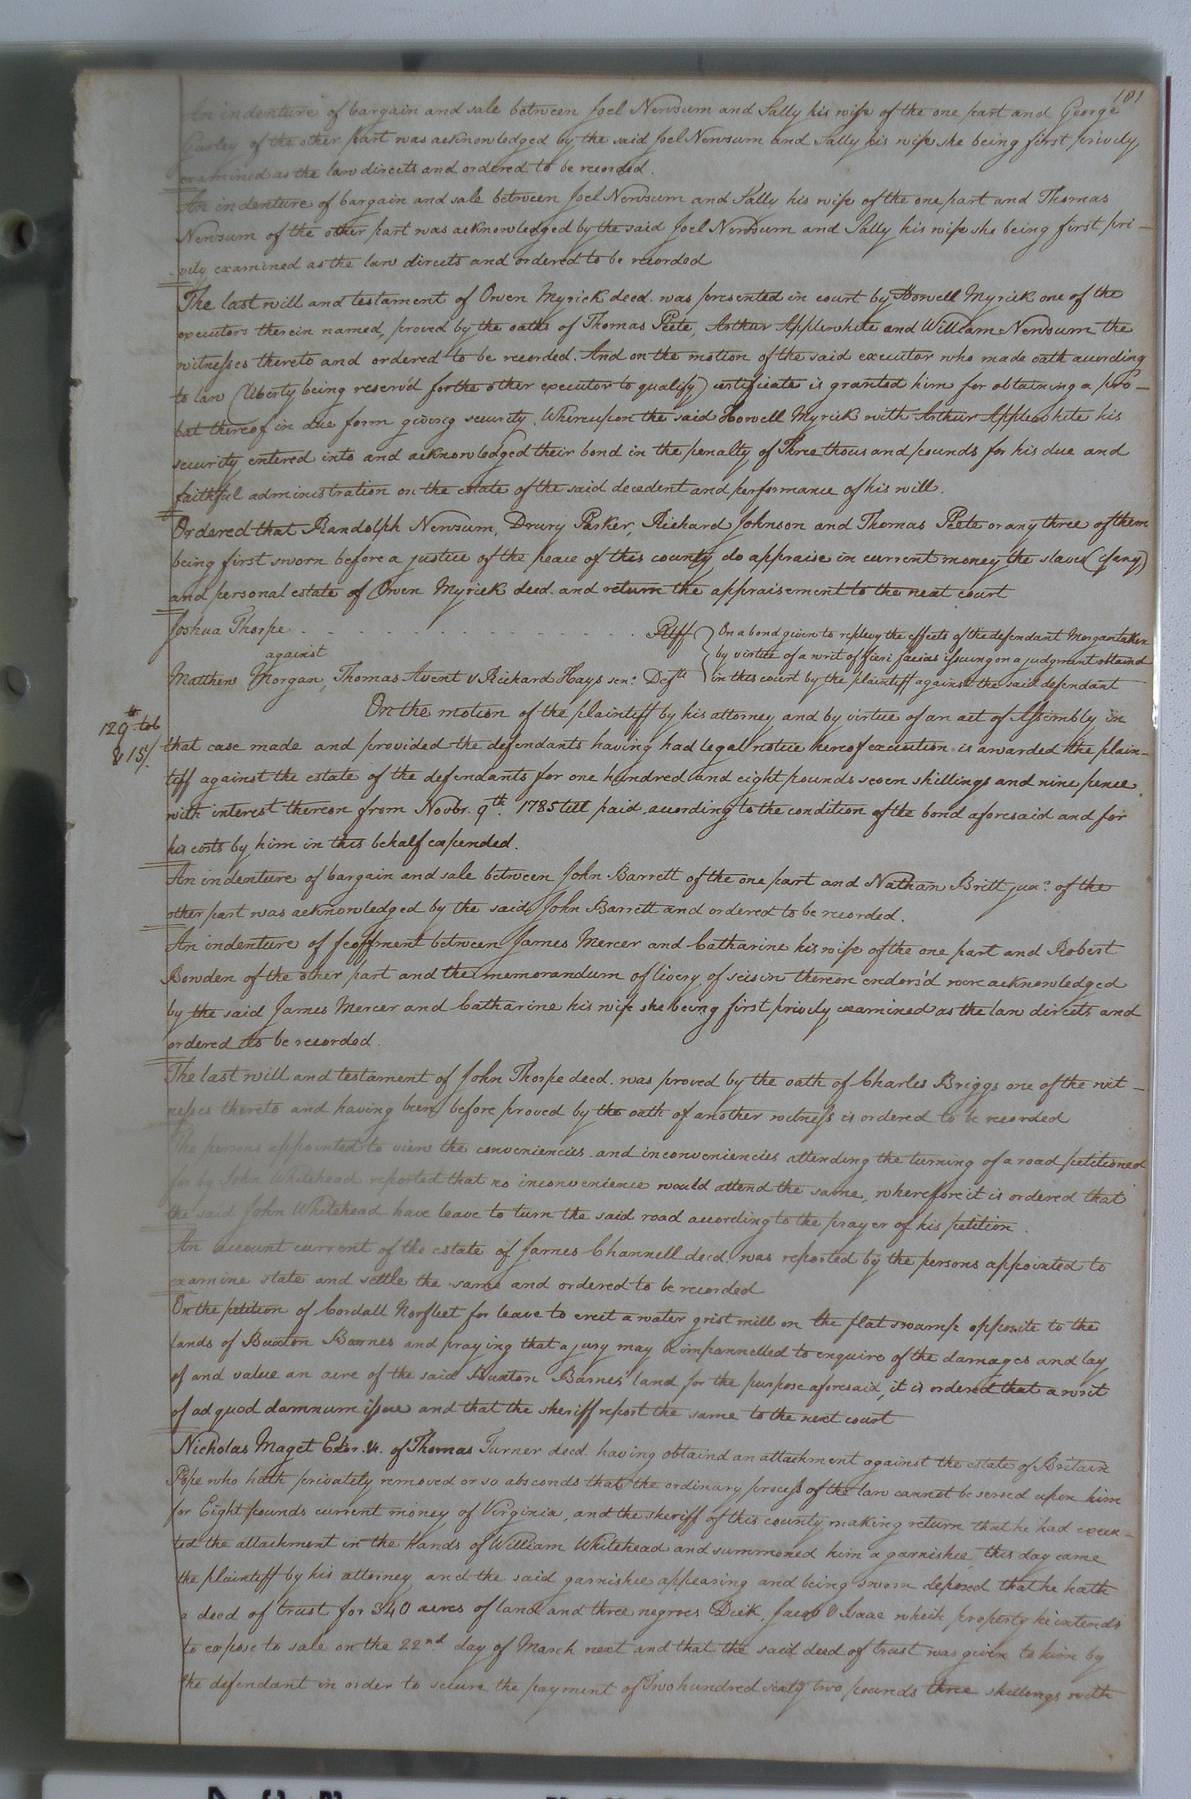 101
An indenture of bargain and sale between Joel Newsum and Sally his wife of the one part and George
Gurley of the other part was acknowledged by the said Joel Newsum and Sally his wife she being first privily
examined as the law directs and ordered to be recorded.
An indenture of bargain and sale between Joel Newsum and Sally his wife of the one part and Thomas
Newsum of the other part was acknowledged by the said Joel Newsum and Sally his wife she being first pri-
vily examined as the law directs and ordered to be recorded
The last will and testament of Owen Myrick decd. was presented in court by Howell Myrick one of the
executors therein named, proved by the oaths of Thomas Peete, Arthur Applewhite and William Newsum the
witnesses thereto and ordered to be recorded. And on the motion of the said executor who made oath according
to law (liberty being reserv'd for the other executor to qualify) certificate is granted him for obtaining a pro-
bat thereof in due form giving security. Whereupon the said Howell Myrick with Arthur Applewhite his
security entered into and acknowledged their bond in the penalty of Three thousand pounds for his due and
faithful administration on the estate of the said decedent and performance of his will.
Ordered that Randolph Newsum, Drury Parker, Richard Johnson and Thomas Peete or any three of them
being first sworn before a justice of the peace of this county do appraise in current money the slaves (if any)
and personal estate of Owen Myrick decd. and return the appraisement to the next court
Joshua Thorpe . . . . . . . . . . . . . . . . Pltff
against
Matthew Morgan, Thomas Avent & Richard Hays senr. Defts
On a bond given to replevy the effects of the defendant Morgan taken
by virtue of a writ of fieri facias issuing on a judgment obtained
in this court by the plaintiff against the said defendant
On the motion of the plaintiff by his attorney and by virtue of an act of Assembly in
129 lb tob
& 15/.
that case made and provided the defendants having had legal notice hereof execution is awarded the plain-
tiff against the estate of the defendants for one hundred and eight pounds seven shillings and nine pence
with interest thereon from Novbr. 9th. 1785 till paid according to the condition of the bond aforesaid and for
his costs by him in this behalf expended.
An indenture of bargain and sale between John Barrett of the one part and Nathan Britt junr. of the
other part was acknowledged by the said John Barrett and ordered to be recorded.
An indenture of feoffment between James Mercer and Catharine his wife of the one part and Robert
Bowden of the other part and the memorandum of livery of seisin thereon endors'd were acknowledged
by the said James Mercer and Catharine his wife she being first privily examined as the law directs and
ordered to be recorded.
The last will and testament of John Thorpe decd. was proved by the oath of Charles Briggs one of the wit-
nesses thereto and having been before proved by the oath of another witness is ordered to be recorded
The persons appointed to view the conveniencies and inconveniencies attending the turning of a road petitioned
for by John Whitehead reported that no inconvenience would attend the same, wherefore it is ordered that
the said John Whitehead have leave to turn the said road according to the prayer of his petition.
An account current of the estate of James Channell decd. was reported by the persons appointed to
examine state and settle the same and ordered to be recorded
On the petition of Cordall Norfleet for leave to erect a water grist mill on the flat swamp opposite to the
lands of Buxton Barnes and praying that a jury may be impannelled to enquire of the damages and lay
of and value an acre of the said Buxton Barnes land for the purpose aforesaid, it is ordered that a writ
of ad quod damnum issue and that the sheriff report the same to the next court
Nicholas Maget Exor. &c. of Thomas Turner decd. having obtaind an attachment against the estate of Britain
Pope who hath privately removed or so absconds that the ordinary process of the law cannot be served upon him
for Eight pounds current money of Virginia, and the sheriff of this county making return that he had execu-
ted the attachment in the hands of William Whitehead and summoned him a garnishee, this day came
the plaintiff by his attorney and the said garnishee appearing and being sworn deposed that he hath
a deed of trust for 340 acres of land and three negroes Dick, Jacob & Isaac which property he intends
to expose to sale on the 22nd day of March next and that the said deed of trust was given to him by
the defendant in order to secure the payment of Two hundred sixty two pounds three shillings with